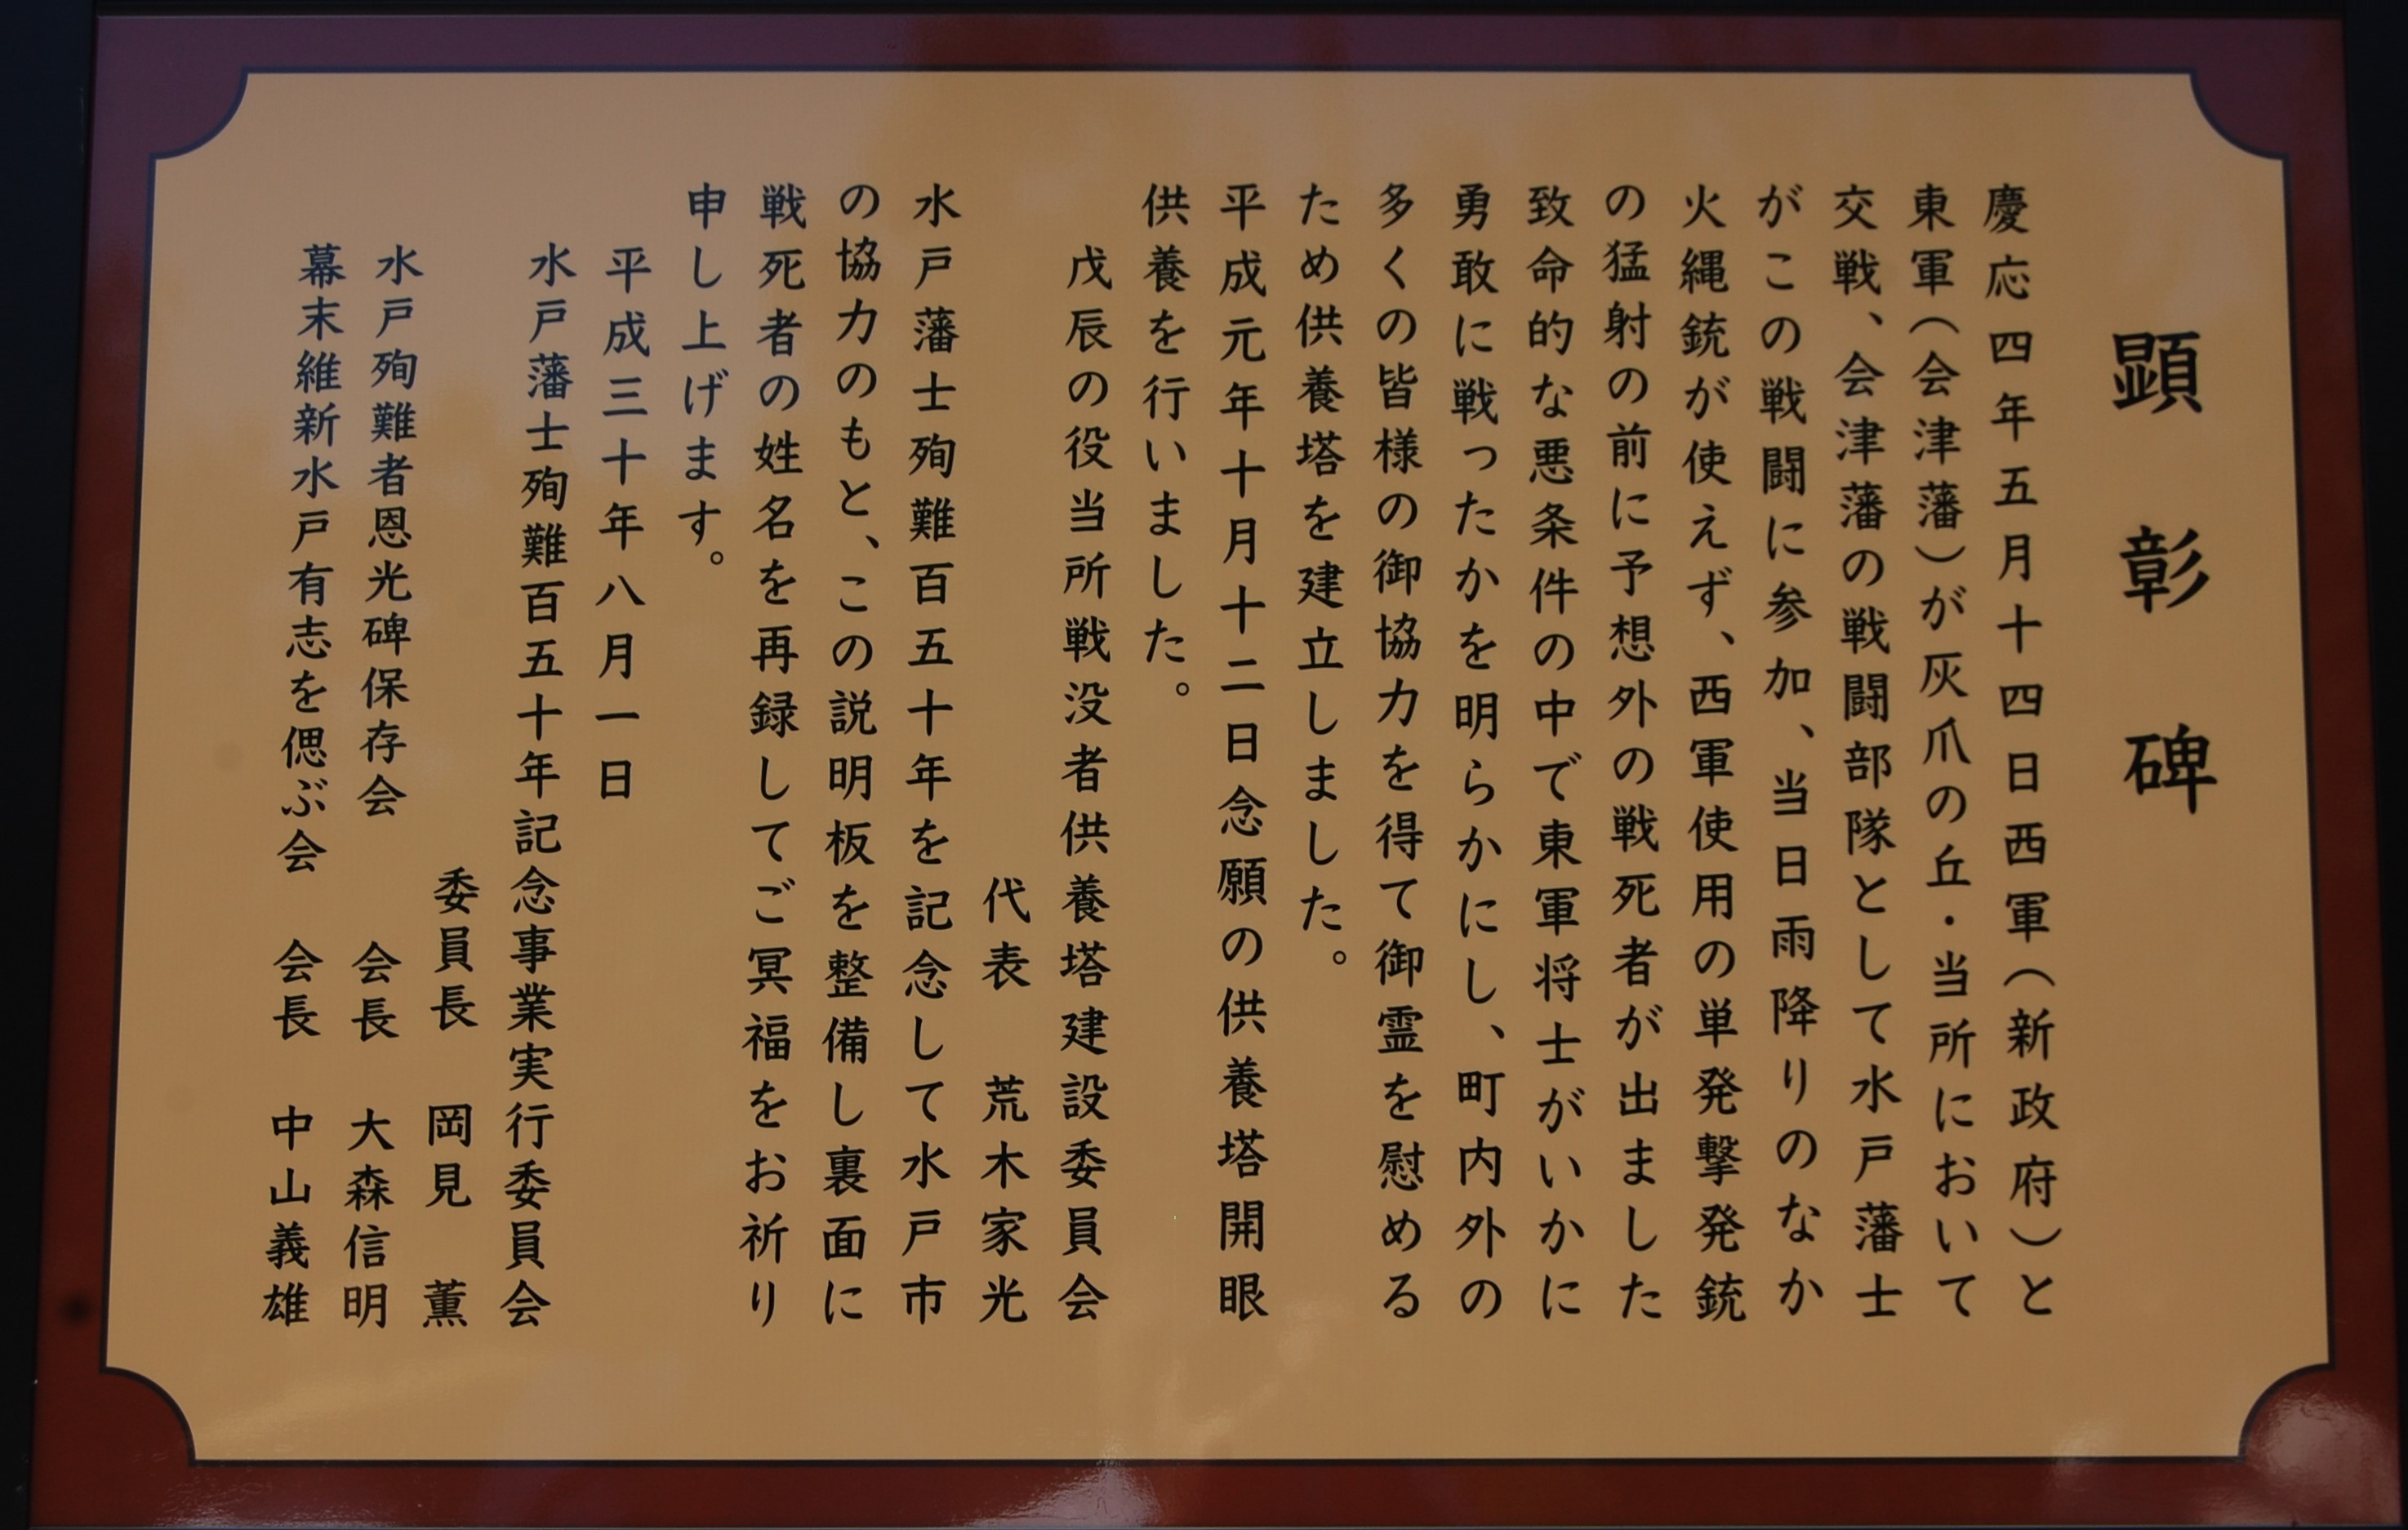 顕彰碑
慶応四年五月十四日西軍（新政府）と
東軍（会津藩）が灰爪の丘・当所において
交戦、会津藩の戦闘部隊として水戸藩士
がこの戦闘に参加、当日雨降りのなか
火縄銃が使えず、西軍使用の単発撃発銃
の猛射の前に予想外の戦死者が出ました
致命的な悪条件の中で東軍将士がいかに
勇敢に戦ったかを明らかにし、町内外の
多くの皆様の御協力を得て御霊を慰める
ため供養塔を建立しました。
平成元年十月十二日念願の供養塔開眼
供養を行いました。
戊辰の役当所戦没者供養塔建設委員会
代表　荒木家光
水戸藩士殉難百五十年を記念して水戸市
の協力のもと、この説明板を整備し裏面に
戦死者の姓名を再録してご冥福をお祈り
申し上げます。
平成三十年八月一日
水戸藩士殉難百五十年記念事業実行委員会
委員長　岡見　薫
水戸殉難者恩光碑保存会　会長　大森信明
幕末維新水戸有志を偲ぶ会　会長　中山義雄